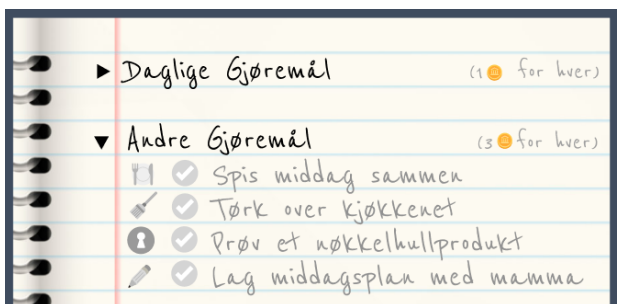 Daglige Gjøremål (1 for hver)
Andre Gjøremål (3 for hver)
Spis middag sammen
Tørk over kjøkkenet
Prøv et nøkkelhullprodukt
Lag middagsplan med mamma